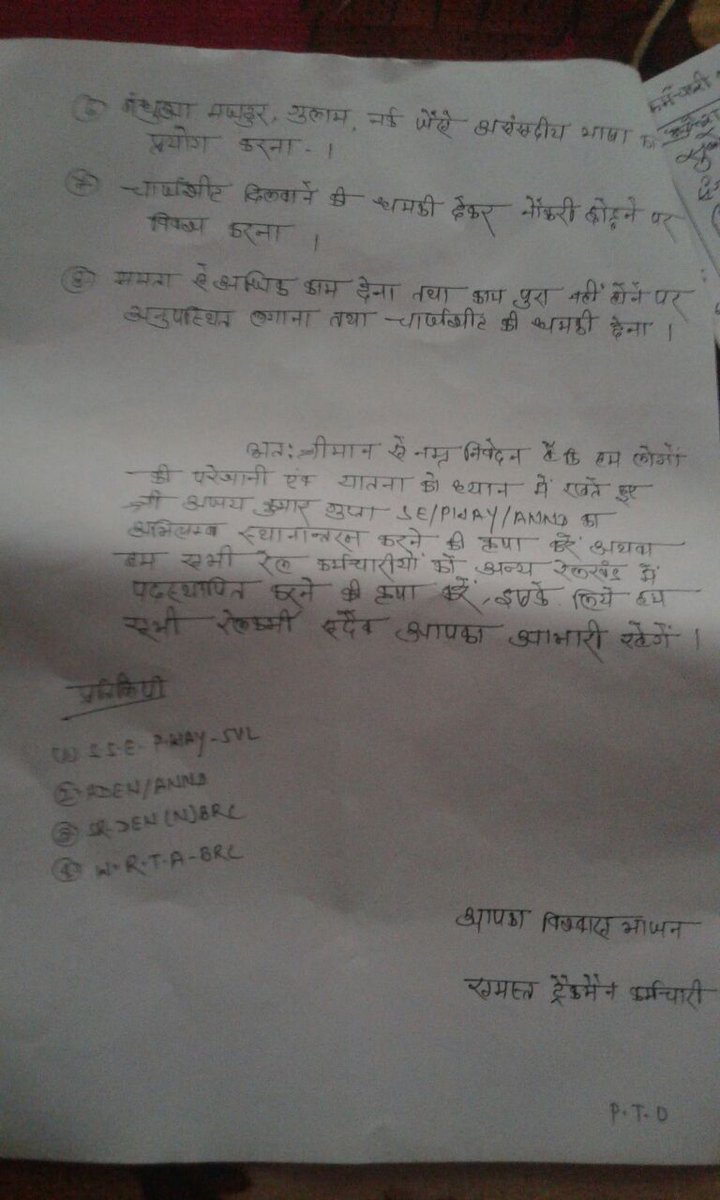 ⑥ बंधुआ मजदूर, गुलाम, नर्क जैसे असंसदीय भाषा का
प्रयोग करना - ।
⑦ चार्जशीट दिलवाने की धमकी देकर नौकरी छोड़ने पर
विवश करना ।
⑧ समय से अधिक काम देना तथा काम पुरा नहीं होने पर
अनुपस्थित लगाना तथा चार्जशीट की धमकी देना ।
अत: श्रीमान से नम्र निवेदन है कि हम लोगों
की परेशानी एवं यातना को ध्यान में रखते हुए
श्री अजय कुमार गुप्ता SE/PWAY/ANND का
अविलम्ब स्थानान्तरन करने की कृपा करें अथवा
हम सभी रेल कर्मचारीयों को अन्य रेलखंड में
पदस्थापित करने की कृपा करें, इसके लिये हम
सभी रेलकर्मी सदैव आपका आभारी रहेगें ।
प्रतिलिपी
① S.S.E- P.WAY-SVL
② ADEN/ANND
③ SR.DEN(N)BRC
④ W.R.T.A-BRC
आपका विश्वास भाजन
समस्त ट्रैकमैन कर्मचारी
P.T.O
कर्मचारी